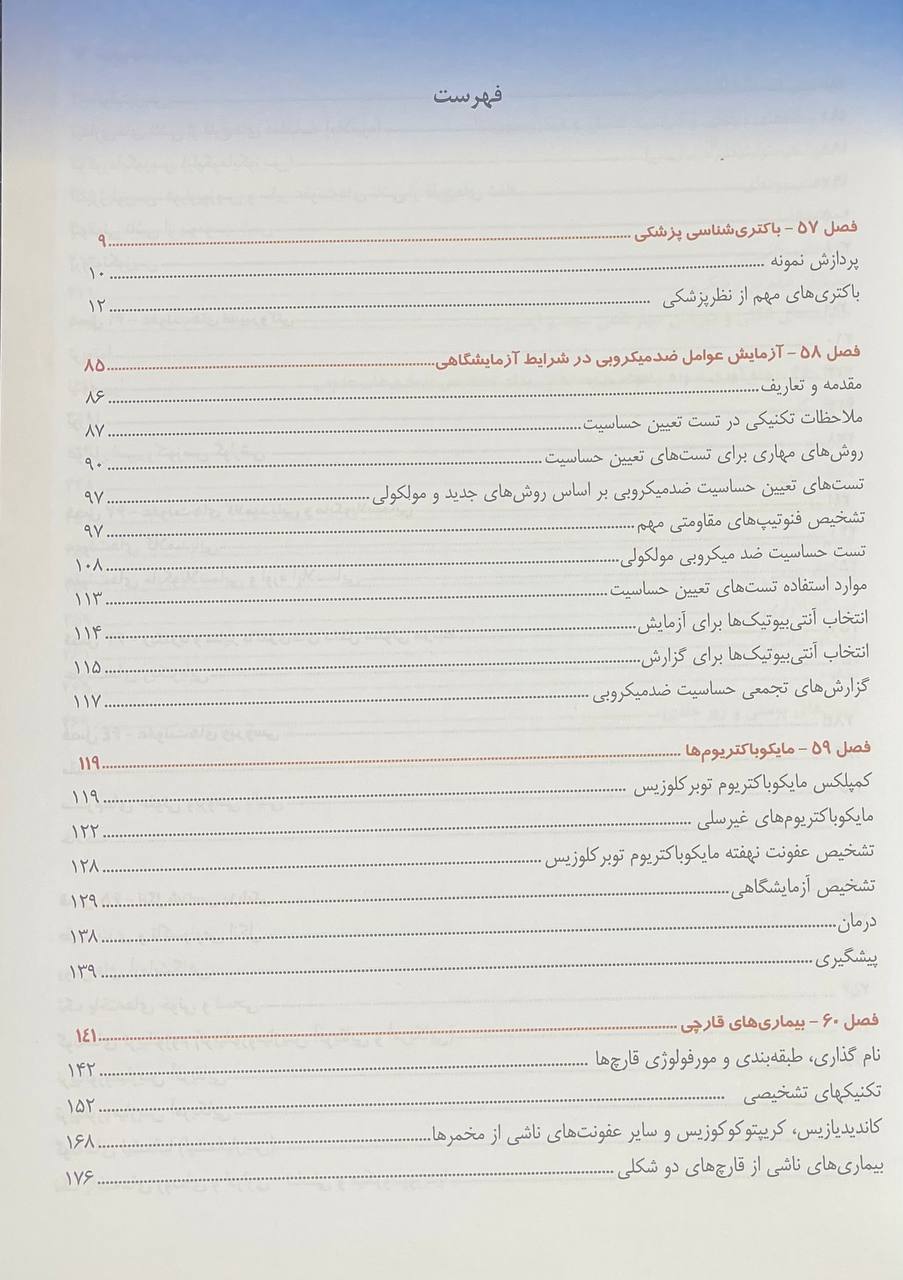 فهرست
فصل ۵۷ - باکتری‌شناسی پزشکی ۹
پردازش نمونه ۱۰
باکتری‌های مهم از نظرپزشکی ۱۲
فصل ۵۸ - آزمایش عوامل ضدمیکروبی در شرایط آزمایشگاهی ۸۵
مقدمه و تعاریف ۸۶
ملاحظات تکنیکی در تست تعیین حساسیت ۸۷
روش‌های مهاری برای تست‌های تعیین حساسیت ۹۰
تست‌های تعیین حساسیت ضدمیکروبی بر اساس روش‌های جدید و مولکولی ۹۷
تشخیص فنوتیپ‌های مقاومتی مهم ۹۷
تست حساسیت ضد میکروبی مولکولی ۱۰۸
موارد استفاده تست‌های تعیین حساسیت ۱۱۳
انتخاب آنتی‌بیوتیک‌ها برای آزمایش ۱۱۴
انتخاب آنتی‌بیوتیک‌ها برای گزارش ۱۱۵
گزارش‌های تجمعی حساسیت ضدمیکروبی ۱۱۷
فصل ۵۹ - مایکوباکتریوم‌ها ۱۱۹
کمپلکس مایکوباکتریوم توبرکلوزیس ۱۱۹
مایکوباکتریوم‌های غیرسلی ۱۲۲
تشخیص عفونت نهفته مایکوباکتریوم توبرکلوزیس ۱۲۸
تشخیص آزمایشگاهی ۱۲۹
درمان ۱۳۸
پیشگیری ۱۳۹
فصل ۶۰ - بیماری‌های قارچی ۱۴۱
نام گذاری، طبقه‌بندی و مورفولوژی قارچ‌ها ۱۴۲
تکنیکهای تشخیصی ۱۵۲
کاندیدیازیس، کریپتوکوکوزیس و سایر عفونت‌های ناشی از مخمرها ۱۶۸
بیماری‌های ناشی از قارچ‌های دو شکلی ۱۷۶